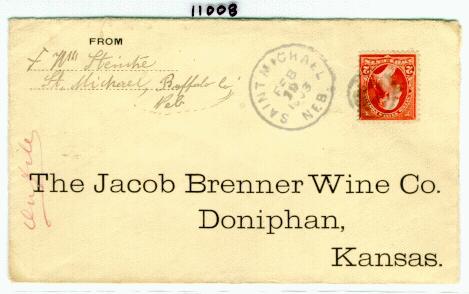 11008
FROM
F. Wm Steinke
St. Michael, Buffalo Co
Neb
SAINT MICHAEL NEB.
FEB
19
The Jacob Brenner Wine Co.
Doniphan,
Kansas.